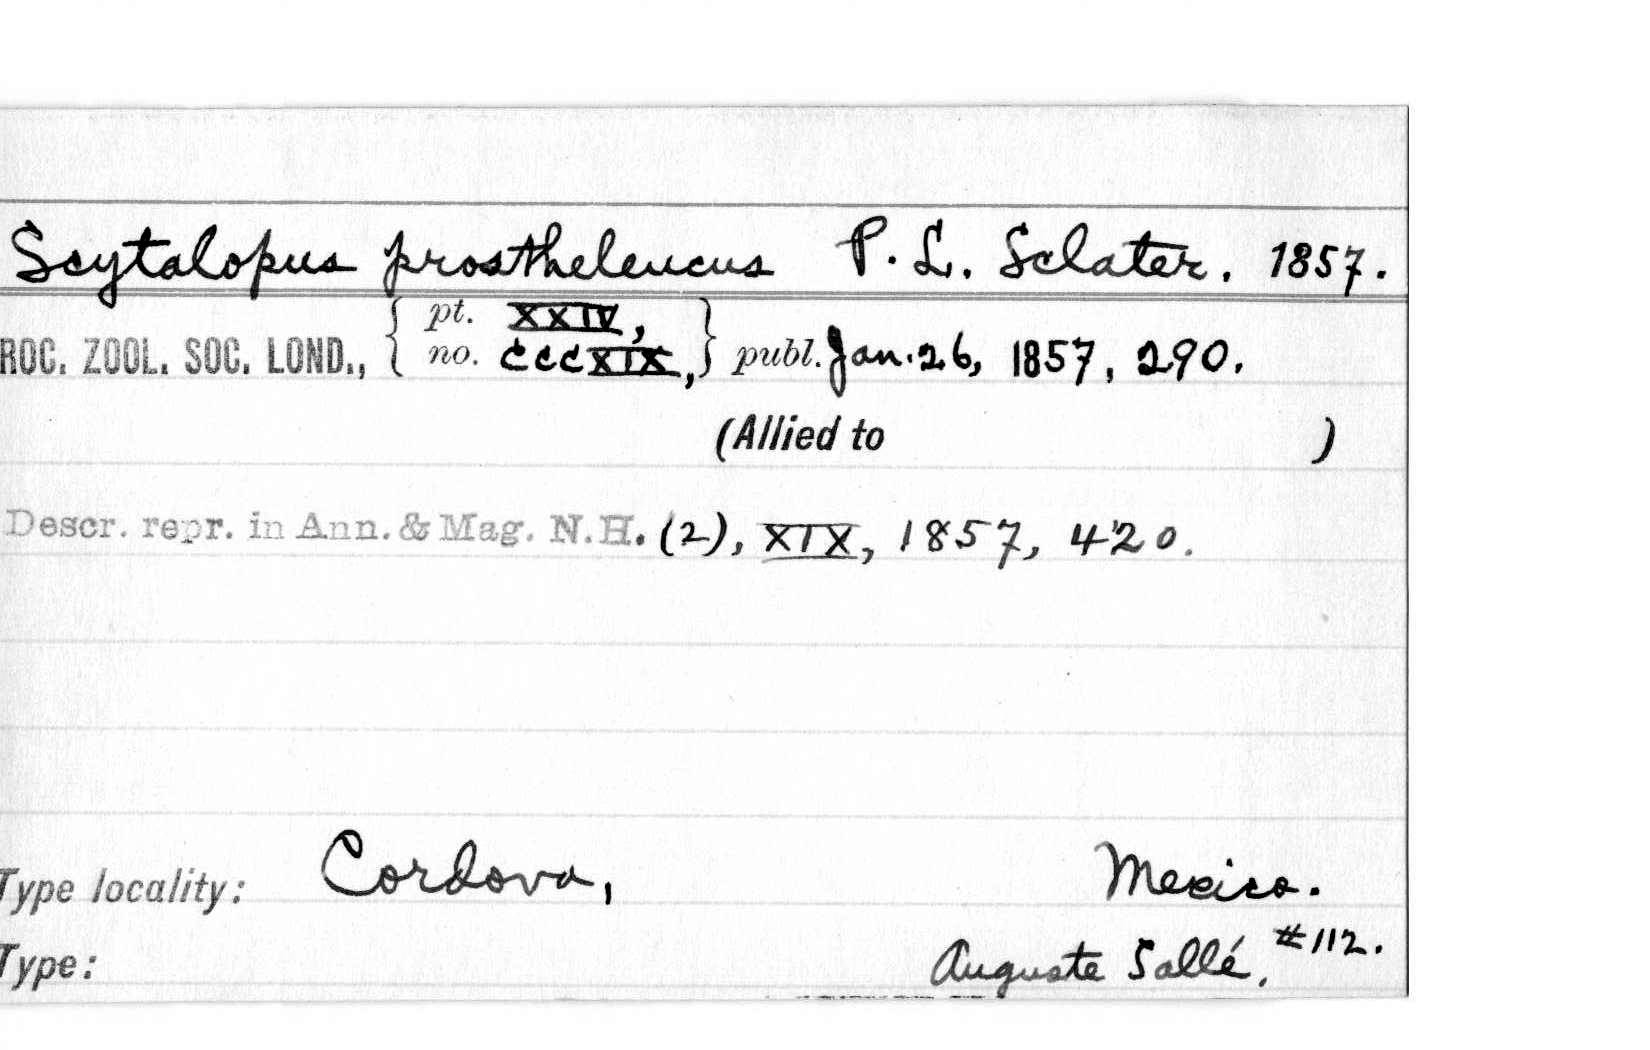 Scytalopus prostheleucus P. L. Sclater. 1857.
ROC. ZOOL. SOC. LOND., { pt. XXIV, no. cccXIX, } publ. Jan. 26, 1857, 290.
(Allied to )
Descr. repr. in Ann. & Mag. N.H. (2), XIX, 1857, 420.
Type locality: Cordova, Mexico.
Type: Auguste Sallé, #112.